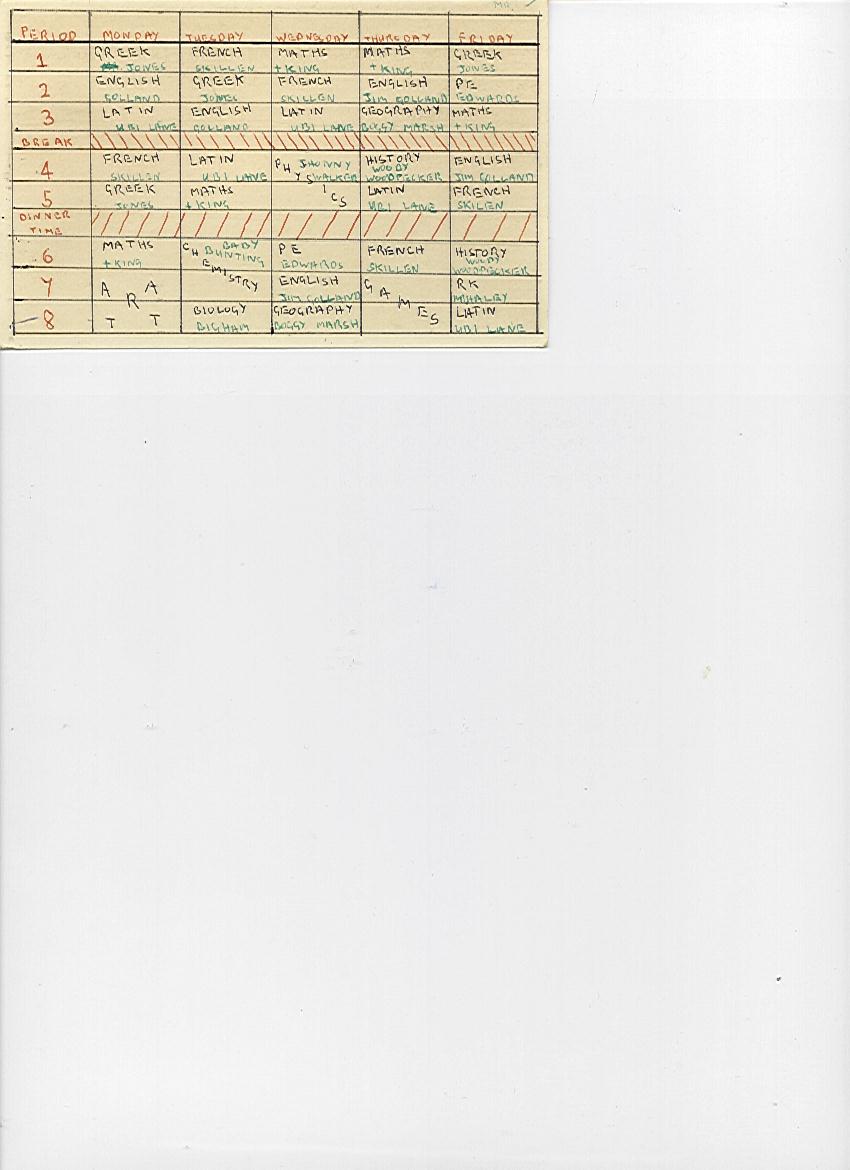 MR.
PERIOD MONDAY TUESDAY WEDNESDAY THURSDAY FRIDAY
1 GREEK FRENCH MATHS MATHS GREEK
JONES SKILLEN + KING + KING JONES
2 ENGLISH GREEK FRENCH ENGLISH PE
GOLLAND JONES SKILLEN JIM GOLLAND EDWARDS
3 LATIN ENGLISH LATIN GEOGRAPHY MATHS
UBI LANE GOLLAND UBI LANE BOGGY MARSH + KING
BREAK
4 FRENCH LATIN PHYSICS JHONNY WALKER HISTORY ENGLISH
SKILLEN UBI LANE WOODY WOODPECKER JIM GOLLAND
5 GREEK MATHS LATIN FRENCH
JONES + KING UBI LANE SKILEN
DINNER
TIME
6 MATHS CHEMISTRY BABY BUNTING PE FRENCH HISTORY
+ KING EDWARDS SKILLEN WOODY WOODPECKER
7 ART ENGLISH GAMES RK
ART JIM GOLLAND
8 BIOLOGY GEOGRAPHY LATIN
BIGHAM BOGGY MARSH UBI LANE